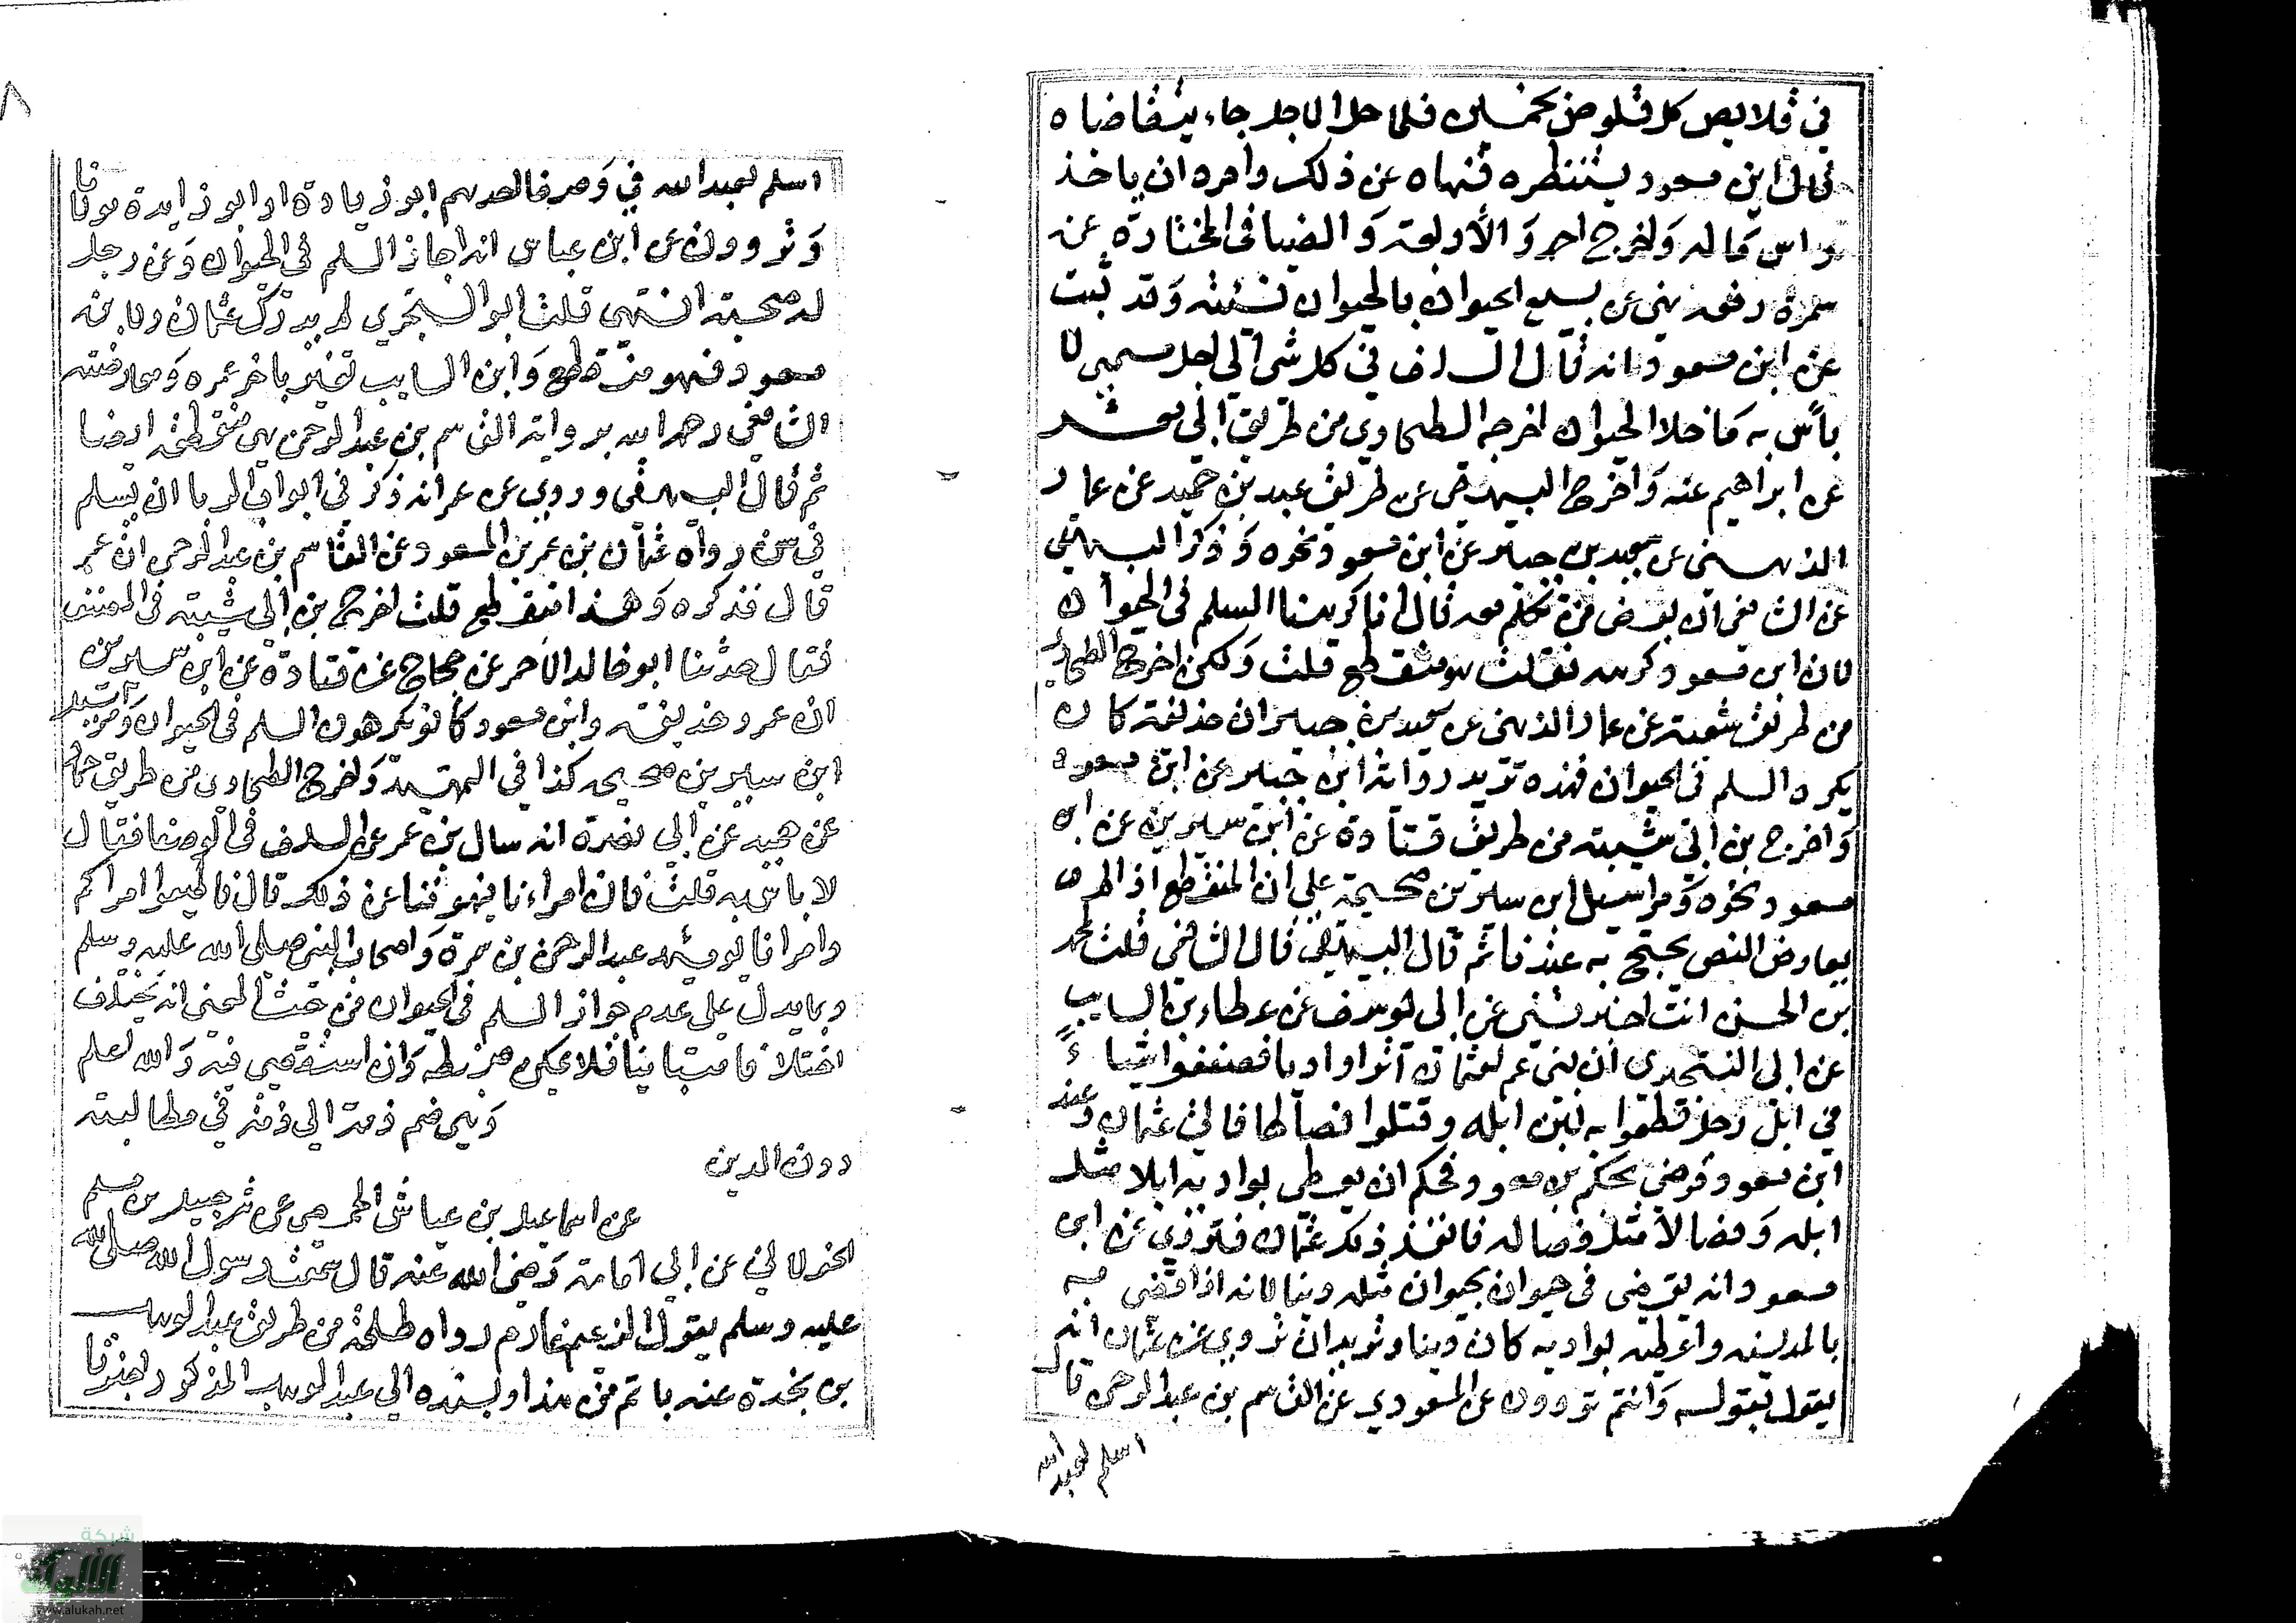 في قلايص كل قلوص بخمسين فلما حل الاجل جاء يتقاضاه
ابن مسعود يستنظره فنهاه عن ذلك وامره ان ياخذ
راس ماله واخرج احمد والأربعة والضيا في المختارة عن
سمرة رفعه نهى عن بيع الحيوان بالحيوان نسئته وقد ثبت
عن ابن مسعود انه قال السلف في كل شي الي اجل مسمى لا
بأس به ما خلا الحيوان اخرجه الطحاوي من طريق ابي معشر
عن ابراهيم عنه واخرج البيهقي عن طريق عبد بن حميد عن عمار
الذهبي عن سعيد بن جبير عن ابن مسعود نحوه وذكر البيهقي
عن الشافعي ان بعض من تكلم معه قال انا كرهنا السلم في الحيوان
لان ابن مسعود كرهه فقلت هو منقطع قلت ولكن اخرج الطحاوي
من طريق شعبة عن عمار الذهبي عن سعيد بن جبير ان حذيفة كان
يكره السلم في الحيوان فهذه تويد رواية ابن جبير عن ابن مسعود
واخرج بن ابي شيبة من طريق قتادة عن ابن سيرين عن ابن
مسعود نحوه ومراسيل ابن سيرين صحيحة على ان المنقطع اذا لم
يعارض النص يحتج به عندنا ثم قال البيهقي قال الشافعي قلت لمحمد
بن الحسن انت اخبرتني عن ابي يوسف عن عطاء بن السايب
عن ابي البختري ان بني عم لعثمان أتوا واديا فصنعوا شيا
في ابل رجل قطعوا به لبن ابله وقتلوا فصالها فاتي عثمان وعنده
ابن مسعود فرضي بحكم بن مسعود فحكم ان يعطي بواديه ابلا مثل
ابله وفصالا مثل فصاله فانفذ ذلك عثمان فتروي عن ابن
مسعود انه يقضي في حيوان بحيوان مثله دينا لانه اذا قضي به
بالمدينه واعطيه بواديه كان دينا وتريد ان تروي عن عثمان انه
يقول بقوله وانتم تروون عن المسعودي عن القاسم بن عبد الرحمن قال
اسلم لعبد الله
٨
اسلم لعبد الله في وصفا احدهم ابو زيادة او ابو زايدة مولانا
وتروون عن ابن عباس انه اجاز السلم في الحيوان وعن رجل
له صحبته انتهى قلت ابو البختري لم يدرك عثمان ولا بن
مسعود فهو منقطع وابن السايب تغير باخر عمره ومعارضته
الشافعي رحمه الله برواية القاسم بن عبد الرحمن هي منقطعه ايضا
ثم قال البيهقي وروي عن عمر انه ذكر في ابواب الربا ان يسلم
في سن رواه عثمان بن عمر بن المسعود عن القاسم بن عبد الرحمن ان عمر
قال فذكره وهذا منقطع قلت اخرج بن ابي شيبته في المصنف
فقال حدثنا ابو خالد الأحمر عن حجاج عن قتادة عن ابن سيرين
ان عمر وحذيفة وابن مسعود كانو يكرهون السلم في الحيوان ومراسيل
ابن سيرين صحيحه كذا في التمهيد واخرج الطحاوي من طريق حماد
عن حميد عن ابي نضرة انه سال بن عمر عن السلف في الوصفا فقال
لا باس به قلت فان امراءنا ينهوننا عن ذلك قال فاطيعوا امراكم
وامرانا يوميئد عبد الرحمن بن سمرة واصحاب النبي صلى الله عليه وسلم
ومما يدل على عدم جواز السلم في الحيوان من حيث المعنى انه يختلف
اختلافا متباينا فلا يمكن ضبطه وان استقصي فيه والله اعلم
وهي ضم ذمة الي ذمة في مطالبته
دون الدين
عن اسماعيل بن عياش الحمصي عن شرحبيل بن مسلم
الخولاني عن ابي امامة رضي الله عنه قال سمعت رسول الله صلى الله
عليه وسلم يقول الزعيم غارم رواه طلحة من طريق عبد الوهاب
بن نجدة عنه باتم من هذا وبسنده الي عبد الوهاب المذكور اخبرنا
شبكة
الألوكة
www.alukah.net